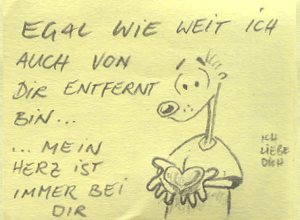 EGAL WIE WEIT ICH
AUCH VON
DIR ENTFERNT
BIN...
... MEIN
HERZ IST
IMMER BEI
DIR
ICH
LIEBE
DICH